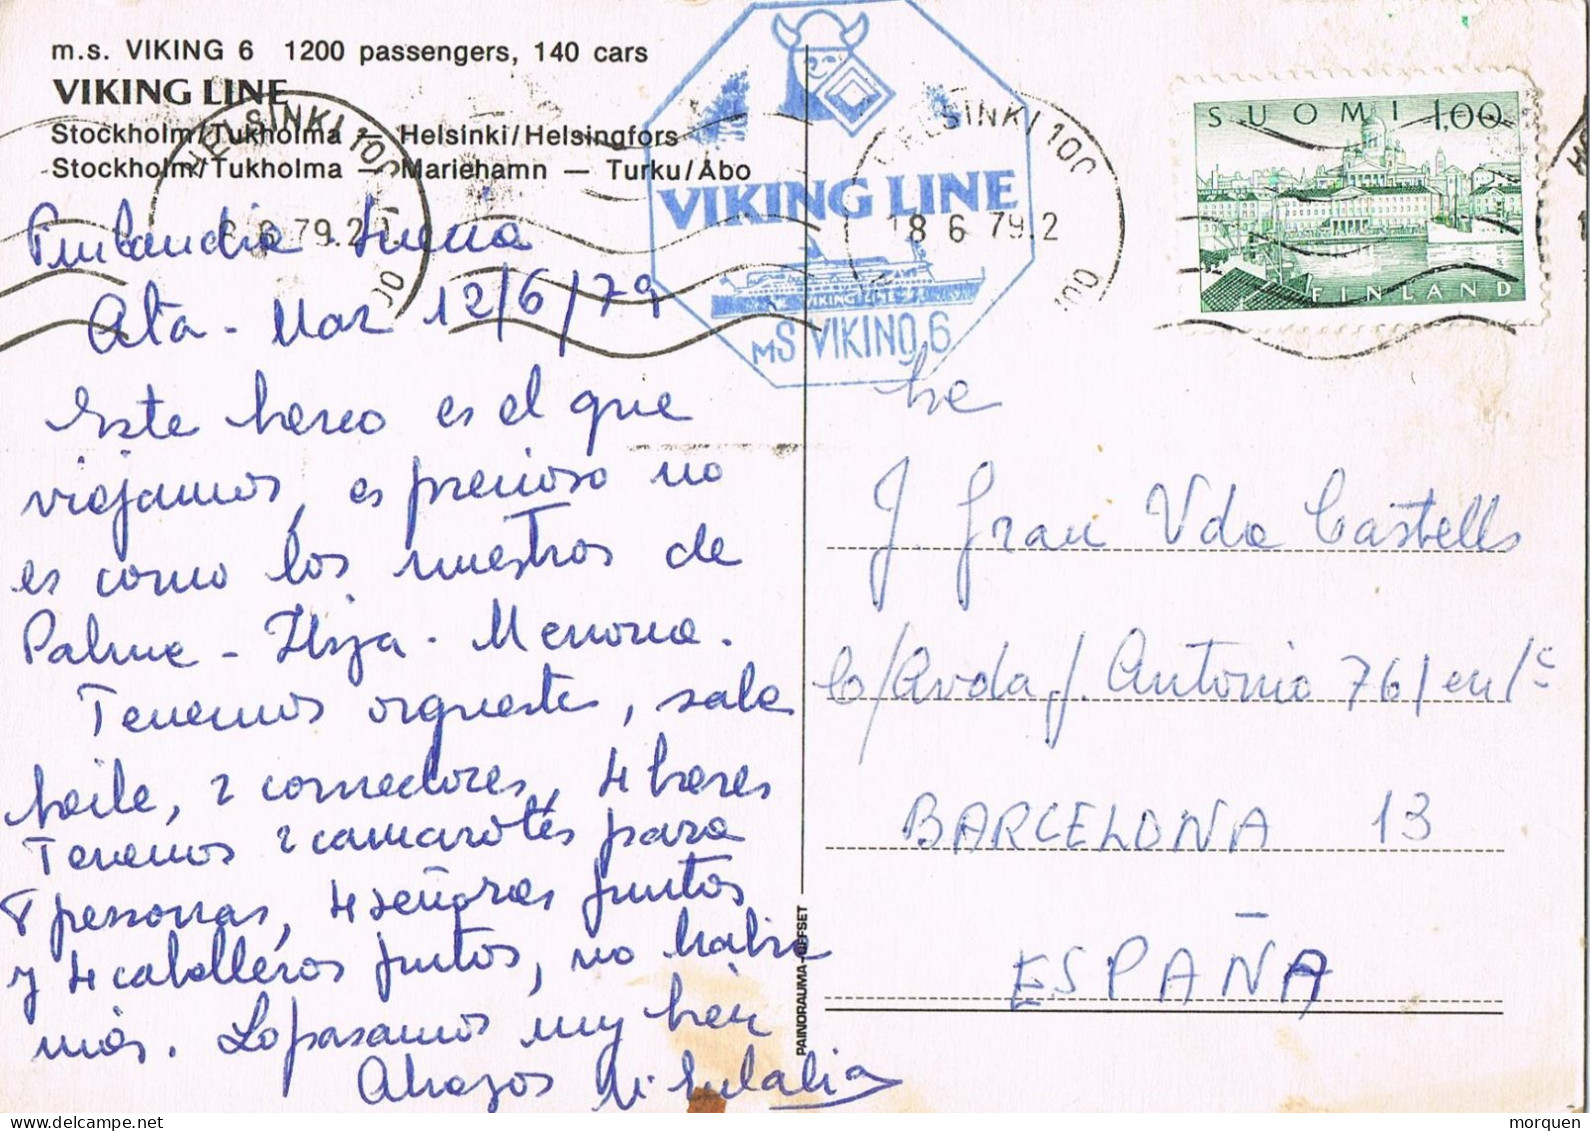 m.s. VIKING 6 1200 passengers, 140 cars
VIKING LINE
Stockholm/Tukholma — Helsinki/Helsingfors
Stockholm/Tukholma — Mariehamn — Turku/Åbo
HELSINKI 100
8 6 79.2
VIKING LINE
VIKING LINE
MS VIKING 6
HELSINKI 100
18 6 79.2
SUOMI 1,00
FINLAND
Finlandia -
Alta - Mar 12/6/79
Este barco es el que
viajamos, es precioso no
es como los nuestros de
Palma - Ibiza - Menorca.
Tenemos orquesta, sala
baile, 2 comedores, 4 bares
Tenemos 2 camarotes para
8 personas, 4 señoras juntas
y 4 caballeros juntos, no había
más. Lo pasamos muy bien
Abrazos Mª Eulalia
J. Grau Vda Castells
C/Avda J. Antonio 76/en/c
BARCELONA 13
ESPAÑA
PAINORAUMA-OFFSET
morquen